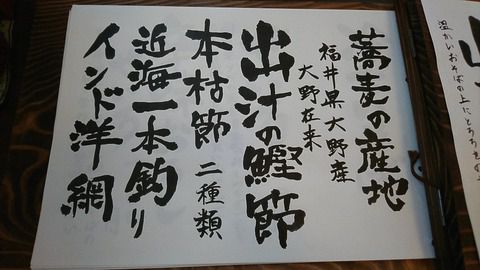 蕎麦の産地
福井県大野産
大野在来
出汁の鰹節
本枯節 二種類
近海一本釣り
インド洋網
温かいおそばの上にとろろをの